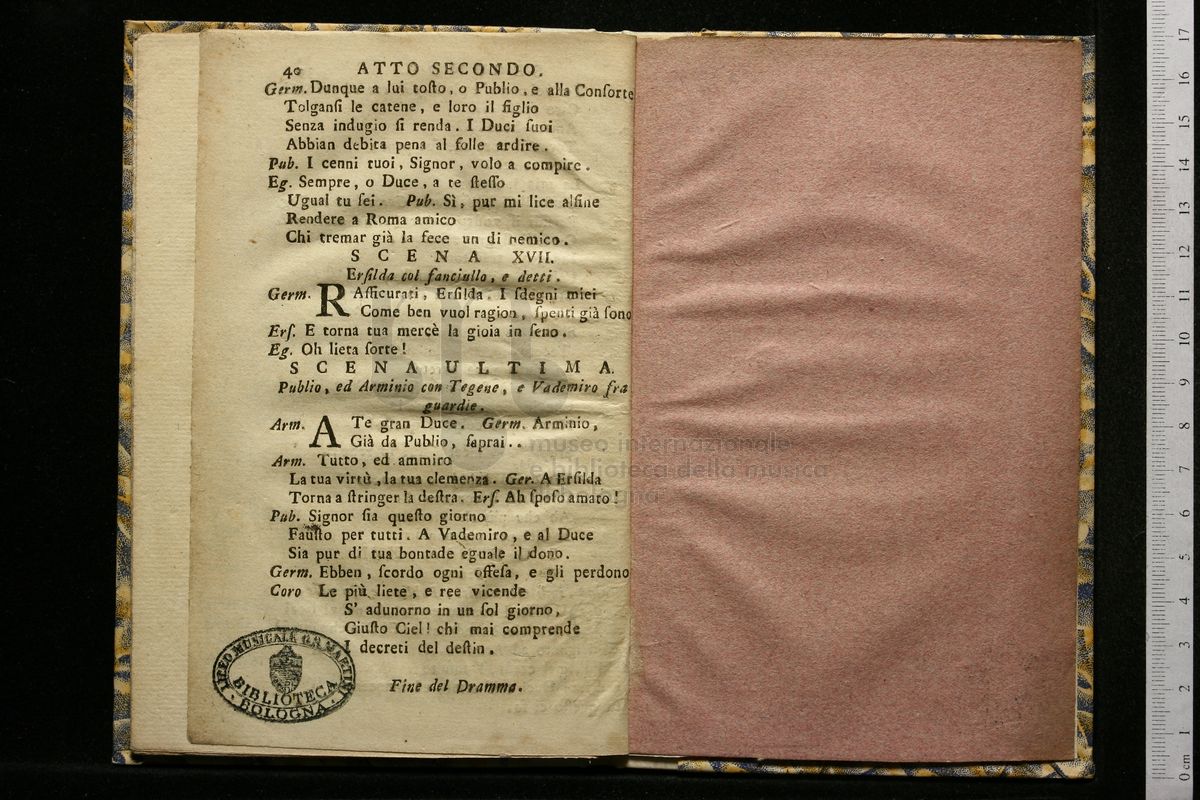 40 ATTO SECONDO.
Germ. Dunque a lui toſto, o Publio, e alla Conſorte
Tolganſi le catene, e loro il figlio
Senza indugio ſi renda. I Duci ſuoi
Abbian debita pena al folle ardire.
Pub. I cenni tuoi, Signor, volo a compire.
Eg. Sempre, o Duce, a te ſteſſo
Ugual tu ſei. Pub. Sì, pur mi lice alfine
Rendere a Roma amico
Chi tremar già la fece un di nemico.
SCENA XVII.
Erſilda col fanciullo, e detti.
Germ. RAſſicurati, Erſilda. I ſdegni miei
Come ben vuol ragion, ſpenti già ſono
Erſ. E torna tua mercè la gioia in ſeno.
Eg. Oh lieta ſorte!
SCENA ULTIMA.
Publio, ed Arminio con Tegene, e Vademiro fra
guardie.
Arm. A Te gran Duce. Germ. Arminio,
Già da Publio, ſaprai..
Arm. Tutto, ed ammiro
La tua virtù, la tua clemenza. Ger. A Erſilda
Torna a ſtringer la deſtra. Erſ. Ah ſpoſo amato!
Pub. Signor ſia queſto giorno
Fauſto per tutti. A Vademiro, e al Duce
Sia pur di tua bontade eguale il dono.
Germ. Ebben, ſcordo ogni offeſa, e gli perdono
Coro Le più liete, e ree vicende
S' adunorno in un ſol giorno,
Giuſto Ciel! chi mai comprende
I decreti del deſtin.
Fine del Dramma.
LICEO MUSICALE G.B. MARTINI
BIBLIOTECA
BOLOGNA
museo internazionale
e biblioteca della musica
di bologna
17
16
15
14
13
12
11
10
9
8
7
6
5
4
3
2
1
0 cm